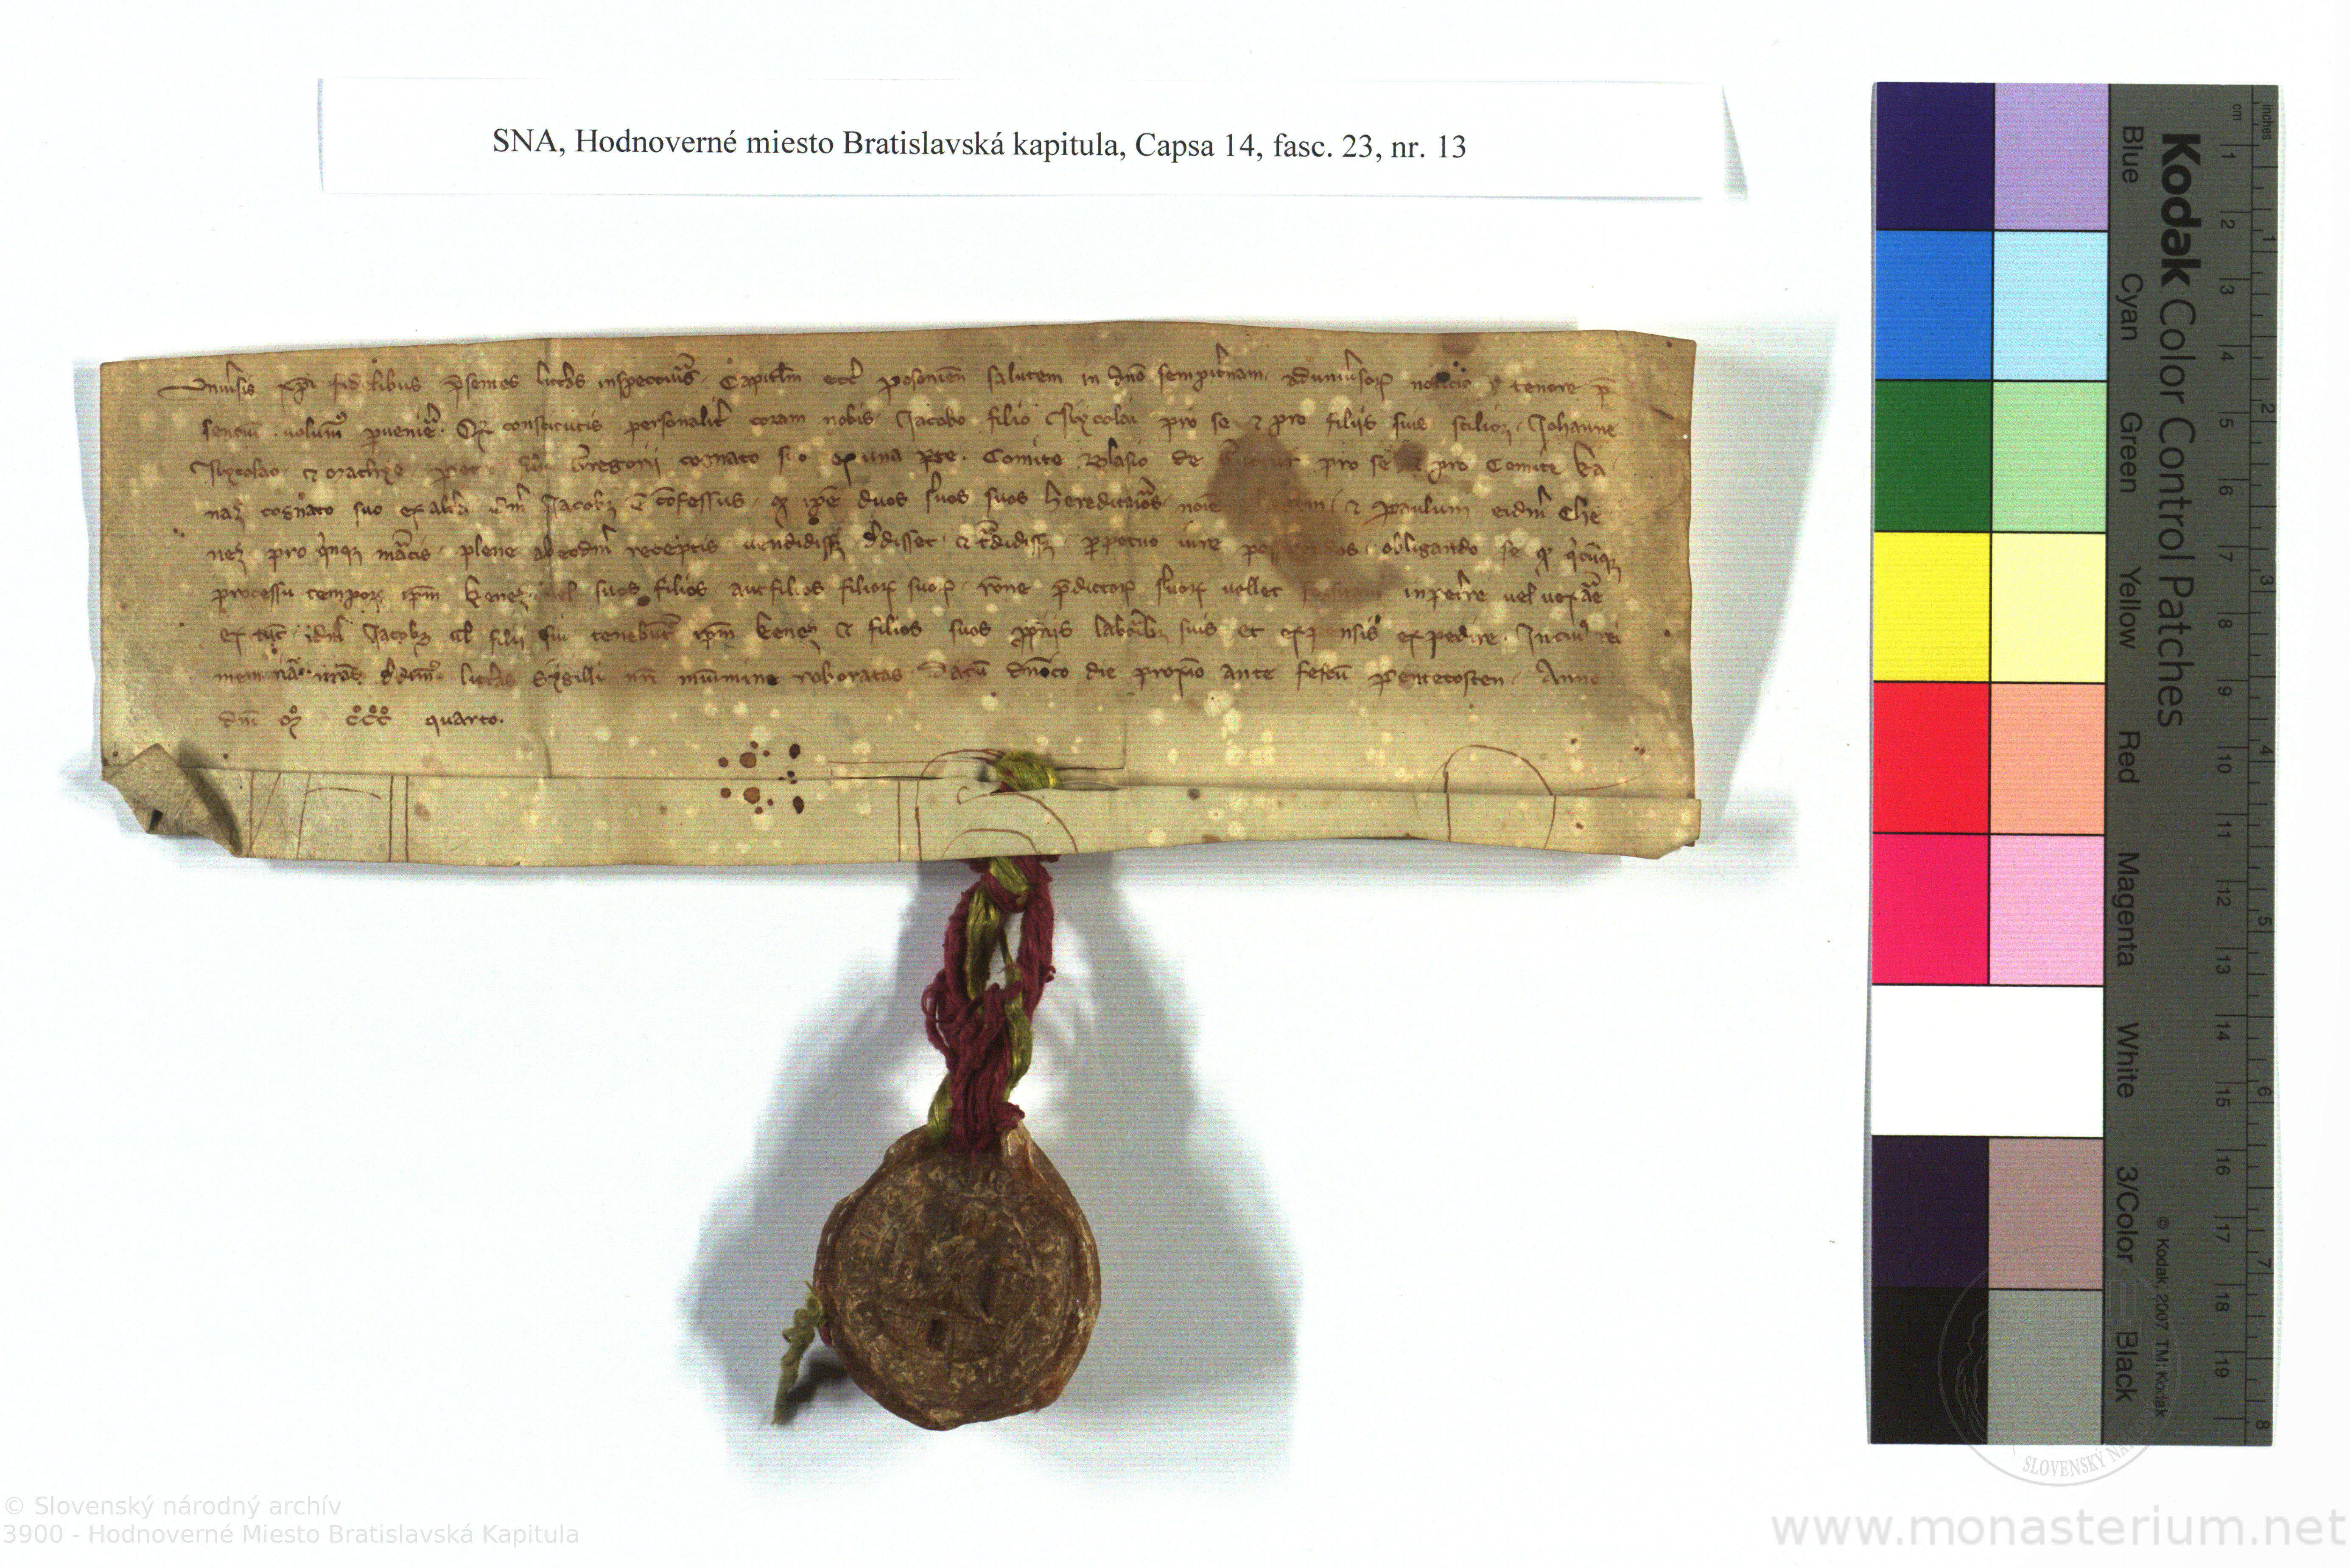 SNA, Hodnoverné miesto Bratislavská kapitula, Capsa 14, fasc. 23, nr. 13
Vniu'sis xp̄i fidelibus p̄sentes litt'as inspectur̄is. Capitl'm ecc'e Posonien̄ salutem in dn̄o sempit'nam. Aduniu'sorꝝ noticia tenore p̄
sentiū uolum᷒ ꝑuenire. Qꝫ constitutis personalit' coram nobis. Jacobo filio Nycolai pro se ⁊ pro filijs suis scilicꝫ. Johanne
Nycolao. ⁊ Mathye. Gregorij cognato suo ex una ꝑte. Comite Blasio de pro se pro Comite Ka
naꝫ cognato suo ex alt'a Jacobꝫ ē cōfessus. ꝙ ip̄e duos s'uos suos hereditar̄ios. noīe ⁊ Paulum eid'm Che
neꝫ. pro q̇nqꝫ mar̄cis. plene ab eod'm receptis uendidissꝫ d'disset. ⁊ t̄didissꝫ. ꝑpetuo iure possidendos. obligando se ꝙ q̇cūqꝫ
processu temporꝫ ip̄m Keneꝫ. uel suos filios. aut filios filiorꝝ suorꝝ. rōne p̄dictorꝝ s'uorꝝ uellet inpet'e uel uexar̄e
ex tūc. id'm Jacobꝫ ul' filij sui tenebūt᷑ ip̄m Keneꝫ ⁊ filios suos ꝓprijs laborib᷒ suis et expensis expedire. In cui᷒ rei
memoriā. nr̄as d'dim᷒. litt'as Sygilli nr̄i mūimine roboratas. Datū dn̄ico die proxīo ante festū Pentecosten. Anno
dn̄i Mͦ CͦCͦCͦ quarto.
Kodak Color Control Patches
Blue
Cyan
Green
Yellow
Red
Magenta
White
3/Color
Black
© Kodak, 2007 TM: Kodak
inches
cm
1 2 3 4 5 6 7 8 9 10 11 12 13 14 15 16 17 18 19
1 2 3 4 5 6 7 8
SLOVENSKÝ
© Slovenský národný archív
3900 - Hodnoverné Miesto Bratislavská Kapitula
www.monasterium.net